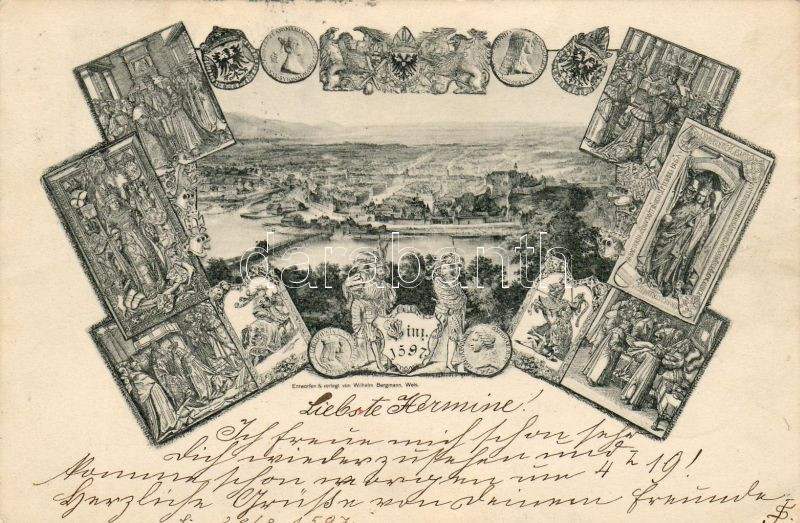 Linz
1597
Entworfen & verlegt von Wilhelm Bergmann, Wels.
darabanth.com
Liebste Hermine!
Ich freue mich schon sehr
Dich wiederzusehen und
komme schon morgen um 4 19!
Herzliche Grüße von Deinem Freunde